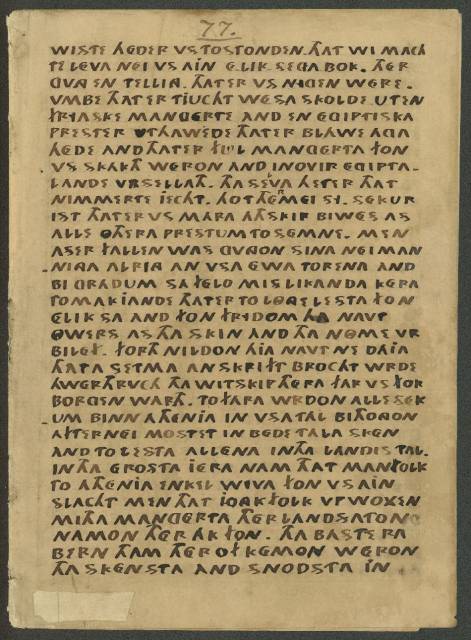 77.
WISTE HWER VS TO STONDEN. THAT WI MACH
TE LEVA NEI VS AIN ELIK SEGA BOK. THER
EN TELLIA. THATER VS NIGEN WERE.
VMBE THAT ER TJUCHT WESA SKOLDE. UTEN
FRYASKE MANGERTE AND EN EGIPTISKA
PRESTER UTHAWEDE THATER BLAWE AGA
HEDE AND THATER FUL MANGERTA FON
VS SKAKT WERON AND IN OVIR EGIPTA-
LANDE VRSELLATH. THA SELVA HETER THAT
NIMMERTE JECHT. HO THET MEI SI. SEKUR
IST THATER VS MARA ATHSKIP BIWES AS
ALLE OTHERA PRESTUM TO SEMNE. MEN
AS ER FALLEN WAS GVNGON SINA NEIMAN
NINGA ALRIA AN VSA EWA TORENA AND
BIGRADUM SA FELO MISLIKANDA KERA
TO MAKIANDE THATER TO LONGE LESTA FON
ELIK SA AND FON FRYDOM HA NAVT
OWERS AS THA SKIN AND THA NOME VR
BILEF. FORTH NILDON HIA NAVT NE DAJA
THATA SETMA AN SKRIFT BROCHT WRDE
HWERTHRVCH THA WITSKIP THERA FAR VS FOR
BORGEN WARTH. TO FARA WRDON ALLE SEK
UM BINN ATHENIA IN VSA TAL BITHONGON
AFTERNEI MOST ET IN BEDE TALA SKEN
AND TO LESTA ALLENA IN THA LANDIS TAL.
IN THA EROSTA JERA NAM THAT MANFOLK
TO ATHENIA ENKEL WIVA FON VS AIN
SLACHT MEN THAT JONGKFOLK VPWOXEN
MITHA MANGERTA THER LANDSATON
NAMON THERAK FON. THA BASTERA
BERN THAM THEROF KEMON WERON
THA SKENSTA AND SNODSTA IN